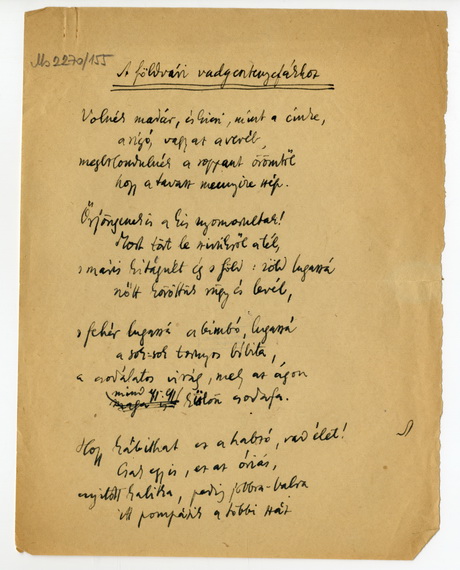 Ms 2270/155
A földvári vadgesztenyefákhoz
Volnék madár, és kicsi, mint a cinke,
a rigó, vagy a veréb,
megbolondulnék a roppant örömtől
hogy a tavasz mennyire szép.
Őrjöngenek is a kis nyomorultak!
Most tört le szívükről a tél,
s máris kitágult ég s föld: zöld lugassá
nőtt köröttük rügy és levél,
s fehér lugassá a bimbó, lugassá
a sok-sok tornyos bóbita,
a csodálatos virág, mely az ágon
mind külön csodafa.
Hogy kábíthat ez a habzó, vad élet!
Csak egy is, ez az óriás,
nyitott kalitka, pedig jobbra-balra
itt pompázik a többi száz